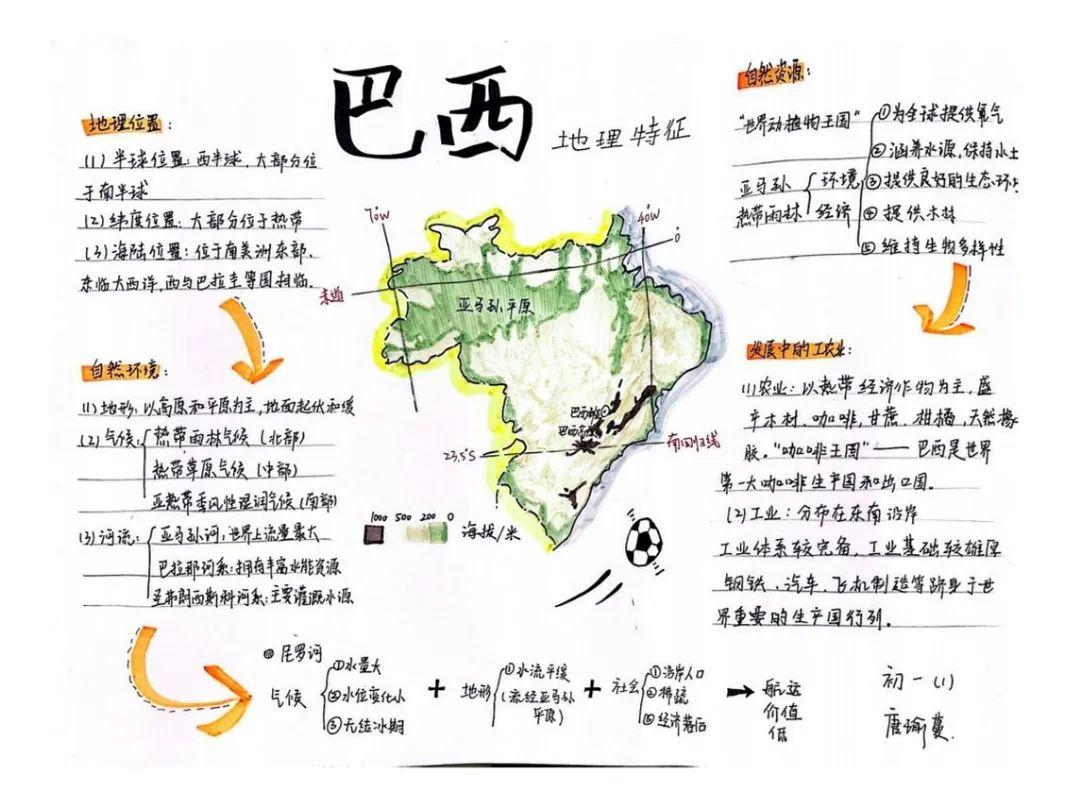 巴西
地理特征
地理位置:
(1)半球位置:西半球,大部分位
于南半球
(2)纬度位置:大部分位于热带
(3)海陆位置:位于南美洲东部、
东临大西洋,西与巴拉圭等国相临.
自然环境:
(1)地形:以高原和平原为主,地面起伏和缓
(2)气候:
热带雨林气候(北部)
热带草原气候(中部)
亚热带季风性湿润气候(南部)
(3)河流:
亚马孙河:世界上流量最大
巴拉那河系:拥有丰富水能资源
圣弗朗西斯科河系:主要灌溉水源
70°W
40°W
0°
赤道
亚马孙平原
巴西
巴西高原
23.5°S
南回归线
1000 500 200 0
海拔/米
自然资源:
"世界动植物王国"
亚马孙
热带雨林
环境
经济
①为全球提供氧气
②涵养水源,保持水土
③提供良好的生态环境
④提供木材
⑤维持生物多样性
发展中的工农业:
(1)农业:以热带经济作物为主,盛
产木材、咖啡,甘蔗、柑橘,天然橡
胶。"咖啡王国"——巴西是世界
第一大咖啡生产国和出口国。
(2)工业:分布在东南沿岸
工业体系较完备,工业基础较雄厚
钢铁、汽车、飞机制造等跻身于世
界重要的生产国行列。
尼罗河
气候
①水量大
②水位变化小
③无结冰期
+
地形
①水流平缓
(流经亚马孙
平原)
+
社会
①沿岸人口
②稀疏
⑤经济落后
航运
价值
低
初一(1)
唐瑜蔓.